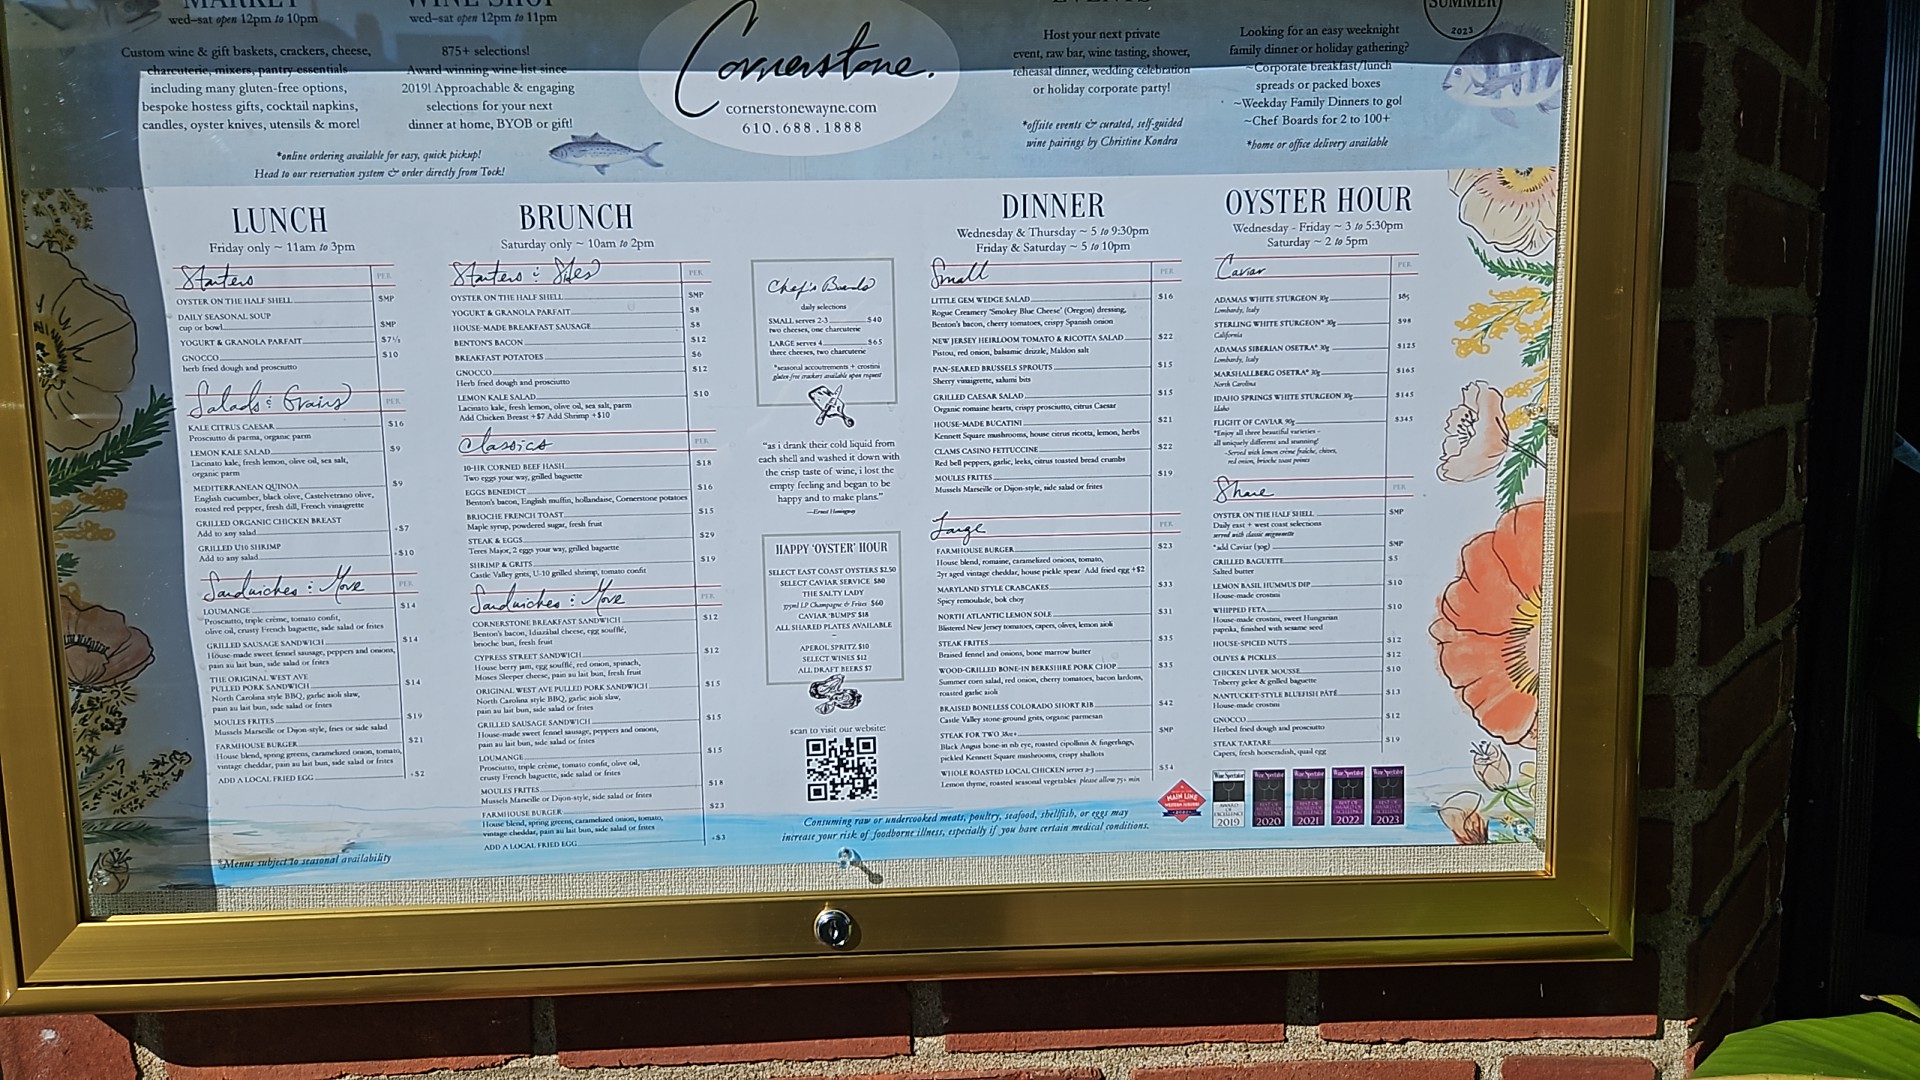 MARKET
wed–sat open 12pm to 10pm
Custom wine & gift baskets, crackers, cheese,
charcuterie, mixers, pantry essentials
including many gluten-free options,
bespoke hostess gifts, cocktail napkins,
candles, oyster knives, utensils & more!
WINE SHOP
wed–sat open 12pm to 11pm
875+ selections!
Award winning wine list since
2019! Approachable & engaging
selections for your next
dinner at home, BYOB or gift!
*online ordering available for easy, quick pickup!
Head to our reservation system & order directly from Tock!
Cornerstone.
cornerstonewayne.com
610.688.1888
EVENTS
Host your next private
event, raw bar, wine tasting, shower,
reheasal dinner, wedding celebration
or holiday corporate party!
*offsite events & curated, self-guided
wine pairings by Christine Kondra
Looking for an easy weeknight
family dinner or holiday gathering?
~Corporate breakfast/lunch
spreads or packed boxes
~Weekday Family Dinners to go!
~Chef Boards for 2 to 100+
*home or office delivery available
SUMMER
2023
LUNCH
Friday only ~ 11am to 3pm
Starters PER
OYSTER ON THE HALF SHELL $MP
DAILY SEASONAL SOUP
cup or bowl $MP
YOGURT & GRANOLA PARFAIT $7½
GNOCCO $10
herb fried dough and prosciutto
Salads & Grains PER
KALE CITRUS CAESAR $16
Prosciutto di parma, organic parm
LEMON KALE SALAD $9
Lacinato kale, fresh lemon, olive oil, sea salt,
organic parm
MEDITERRANEAN QUINOA $9
English cucumber, black olive, Castelvetrano olive,
roasted red pepper, fresh dill, French vinaigrette
GRILLED ORGANIC CHICKEN BREAST
Add to any salad +$7
GRILLED U10 SHRIMP
Add to any salad +$10
Sandwiches & More PER
LOUMANGE $14
Prosciutto, triple crème, tomato confit,
olive oil, crusty French baguette, side salad or frites
GRILLED SAUSAGE SANDWICH $14
House-made sweet fennel sausage, peppers and onions,
pain au lait bun, side salad or frites
THE ORIGINAL WEST AVE
PULLED PORK SANDWICH $14
North Carolina style BBQ, garlic aioli slaw,
pain au lait bun, side salad or frites
MOULES FRITES $19
Mussels Marseille or Dijon-style, fries or side salad
FARMHOUSE BURGER $21
House blend, spring greens, caramelized onion, tomato,
vintage cheddar, pain au lait bun, side salad or frites
ADD A LOCAL FRIED EGG +$2
*Menus subject to seasonal availability
BRUNCH
Saturday only ~ 10am to 2pm
Starters & Sides PER
OYSTER ON THE HALF SHELL $MP
YOGURT & GRANOLA PARFAIT $8
HOUSE-MADE BREAKFAST SAUSAGE $8
BENTON'S BACON $12
BREAKFAST POTATOES $6
GNOCCO $12
Herb fried dough and prosciutto
LEMON KALE SALAD $10
Lacinato kale, fresh lemon, olive oil, sea salt, parm
Add Chicken Breast +$7 Add Shrimp +$10
Classics PER
10-HR CORNED BEEF HASH $18
Two eggs your way, grilled baguette
EGGS BENEDICT $16
Benton's bacon, English muffin, hollandaise, Cornerstone potatoes
BRIOCHE FRENCH TOAST $15
Maple syrup, powdered sugar, fresh fruit
STEAK & EGGS $29
Teres Major, 2 eggs your way, grilled baguette
SHRIMP & GRITS $19
Castle Valley grits, U-10 grilled shrimp, tomato confit
Sandwiches & More PER
CORNERSTONE BREAKFAST SANDWICH $12
Benton's bacon, Idiazábal cheese, egg soufflé,
brioche bun, fresh fruit
CYPRESS STREET SANDWICH $12
House berry jam, egg soufflé, red onion, spinach,
Moses Sleeper cheese, pain au lait bun, fresh fruit
ORIGINAL WEST AVE PULLED PORK SANDWICH $15
North Carolina style BBQ, garlic aioli slaw,
pain au lait bun, side salad or frites
GRILLED SAUSAGE SANDWICH $15
House-made sweet fennel sausage, peppers and onions,
pain au lait bun, side salad or frites
LOUMANGE $15
Prosciutto, triple crème, tomato confit, olive oil,
crusty French baguette, side salad or frites
MOULES FRITES $18
Mussels Marseille or Dijon-style, side salad or frites
FARMHOUSE BURGER $23
House blend, spring greens, caramelized onion, tomato,
vintage cheddar, pain au lait bun, side salad or frites
ADD A LOCAL FRIED EGG +$3
Chef's Boards
daily selections
SMALL serves 2-3 $40
two cheeses, one charcuterie
LARGE serves 4 $65
three cheeses, two charcuterie
*seasonal accoutrements + crostini
gluten free crackers available upon request
"as i drank their cold liquid from
each shell and washed it down with
the crisp taste of wine, i lost the
empty feeling and began to be
happy and to make plans."
—Ernest Hemingway
HAPPY 'OYSTER' HOUR
SELECT EAST COAST OYSTERS $2.50
SELECT CAVIAR SERVICE $80
THE SALTY LADY
375ml LP Champagne & Frites $60
CAVIAR 'BUMPS' $18
ALL SHARED PLATES AVAILABLE
~
APEROL SPRITZ $10
SELECT WINES $12
ALL DRAFT BEERS $7
scan to visit our website:
DINNER
Wednesday & Thursday ~ 5 to 9:30pm
Friday & Saturday ~ 5 to 10pm
Small PER
LITTLE GEM WEDGE SALAD $16
Rogue Creamery 'Smokey Blue Cheese' (Oregon) dressing,
Benton's bacon, cherry tomatoes, crispy Spanish onion
NEW JERSEY HEIRLOOM TOMATO & RICOTTA SALAD $22
Pistou, red onion, balsamic drizzle, Maldon salt
PAN-SEARED BRUSSELS SPROUTS $15
Sherry vinaigrette, salumi bits
GRILLED CAESAR SALAD $15
Organic romaine hearts, crispy prosciutto, citrus Caesar
HOUSE-MADE BUCATINI $21
Kennett Square mushrooms, house citrus ricotta, lemon, herbs
CLAMS CASINO FETTUCCINE $22
Red bell peppers, garlic, leeks, citrus toasted bread crumbs
MOULES FRITES $19
Mussels Marseille or Dijon-style, side salad or frites
Large PER
FARMHOUSE BURGER $23
House blend, romaine, caramelized onions, tomato,
2yr aged vintage cheddar, house pickle spear Add fried egg +$2
MARYLAND STYLE CRABCAKES $33
Spicy remoulade, bok choy
NORTH ATLANTIC LEMON SOLE $31
Blistered New Jersey tomatoes, capers, olives, lemon aioli
STEAK FRITES $35
Braised fennel and onions, bone marrow butter
WOOD-GRILLED BONE-IN BERKSHIRE PORK CHOP $35
Summer corn salad, red onion, cherry tomatoes, bacon lardons,
roasted garlic aioli
BRAISED BONELESS COLORADO SHORT RIB $42
Castle Valley stone-ground grits, organic parmesan
STEAK FOR TWO 38oz+ $MP
Black Angus bone-in rib eye, roasted cipollinis & fingerlings,
pickled Kennett Square mushrooms, crispy shallots
WHOLE ROASTED LOCAL CHICKEN serves 2-3 $54
Lemon thyme, roasted seasonal vegetables please allow 75+ min
Consuming raw or undercooked meats, poultry, seafood, shellfish, or eggs may
increase your risk of foodborne illness, especially if you have certain medical conditions.
OYSTER HOUR
Wednesday - Friday ~ 3 to 5:30pm
Saturday ~ 2 to 5pm
Caviar PER
ADAMAS WHITE STURGEON 30g $85
Lombardy, Italy
STERLING WHITE STURGEON* 30g $98
California
ADAMAS SIBERIAN OSETRA* 30g $125
Lombardy, Italy
MARSHALLBERG OSETRA* 30g $165
North Carolina
IDAHO SPRINGS WHITE STURGEON 30g $145
Idaho
FLIGHT OF CAVIAR 90g $345
*Enjoy all three beautiful varieties -
all uniquely different and stunning!
~Served with lemon crème fraîche, chives,
red onion, brioche toast points
Share PER
OYSTER ON THE HALF SHELL $MP
Daily east + west coast selections
served with classic mignonette
*add Caviar (30g) $MP
GRILLED BAGUETTE $5
Salted butter
LEMON BASIL HUMMUS DIP $10
House-made crostini
WHIPPED FETA $10
House-made crostini, sweet Hungarian
paprika, finished with sesame seed
HOUSE-SPICED NUTS $12
OLIVES & PICKLES $12
CHICKEN LIVER MOUSSE $10
Triberry gelee & grilled baguette
NANTUCKET-STYLE BLUEFISH PÂTÉ $13
House-made crostini
GNOCCO $12
Herbed fried dough and prosciutto
STEAK TARTARE $19
Capers, fresh horseradish, quail egg
MAIN LINE
WESTERN SUBURBS
Wine Spectator Wine Spectator Wine Spectator Wine Spectator Wine Spectator
AWARD OF EXCELLENCE 2019
BEST OF AWARD OF EXCELLENCE 2020
BEST OF AWARD OF EXCELLENCE 2021
BEST OF AWARD OF EXCELLENCE 2022
BEST OF AWARD OF EXCELLENCE 2023